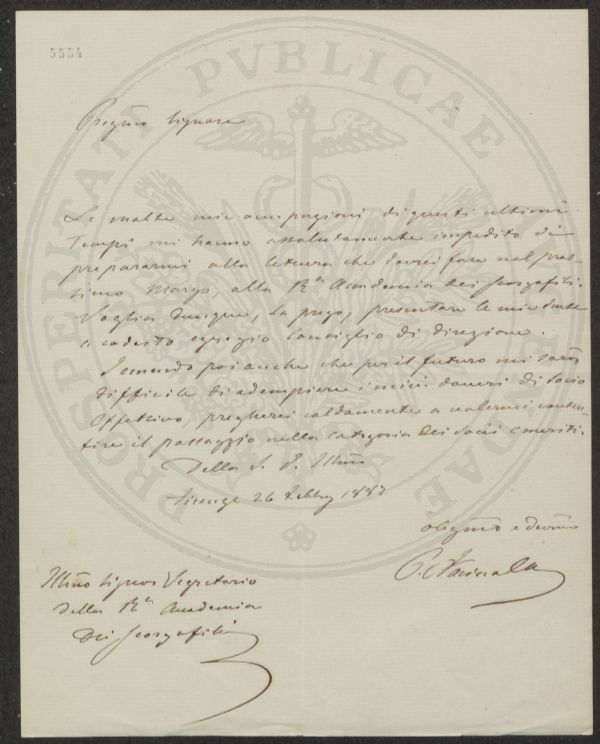 5554
PROSPERITATI PVBLICAE AVGENDAE
Pregmo Signore
Le molte mie occupazioni di questi ultimi
tempi mi hanno assolutamente impedito di
prepararmi alla lettura che dovrei fare nel pros-
simo Marzo, alla Rle Accademia dei Georgofili.
Voglia dunque, La prego, presentare le mie scuse
a codesto egregio Consiglio di direzione.
Temendo poi anche che per il futuro mi sarà
difficile di adempiere i miei doveri di Socio
Effettivo, pregherei caldamente a volermi consen-
tire il passaggio nella categoria dei Socii emeriti.
Della S. V. Illma
Firenze 26 Febbr. 1887
obbligmo e devmo
Illmo Signor Segretario
della Rle Accademia
dei Georgofili